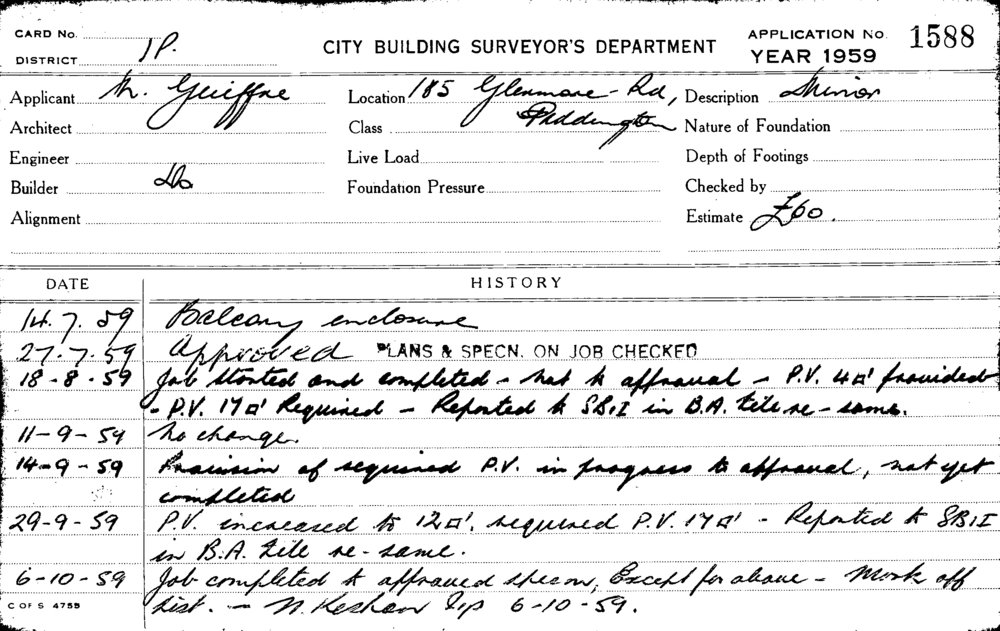 CARD No.
DISTRICT 1P.
CITY BUILDING SURVEYOR'S DEPARTMENT
APPLICATION No. 1588
YEAR 1959
Applicant M. Guiffre Location 185 Glenmore Rd, Description Minor
Architect Class Paddington Nature of Foundation
Engineer Live Load Depth of Footings
Builder Do Foundation Pressure Checked by
Alignment Estimate £60.
DATE HISTORY
14.7.59 Balcony enclosure
27.7.59 Approved PLANS & SPECN. ON JOB CHECKED
18-8-59 Job started and completed - not to approval - P.V. 4□' provided
- P.V. 17□' Required - Reported to SBI in B.A. file re-same.
11-9-59 No change.
14-9-59 Provision of required P.V. in progress to approval, not yet
completed
29-9-59 P.V. increased to 12□', required P.V. 17□' - Reported to SBI
in B.A. file re-same.
6-10-59 Job completed to approved specn, Except for above - Mark off
list. - N. 6-10-59.
C OF S 4755